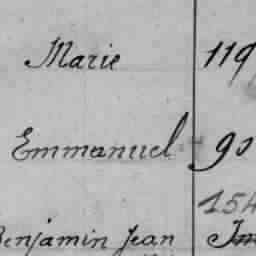 Marie 119
Emmanuel 90
154
Benjamin Jean